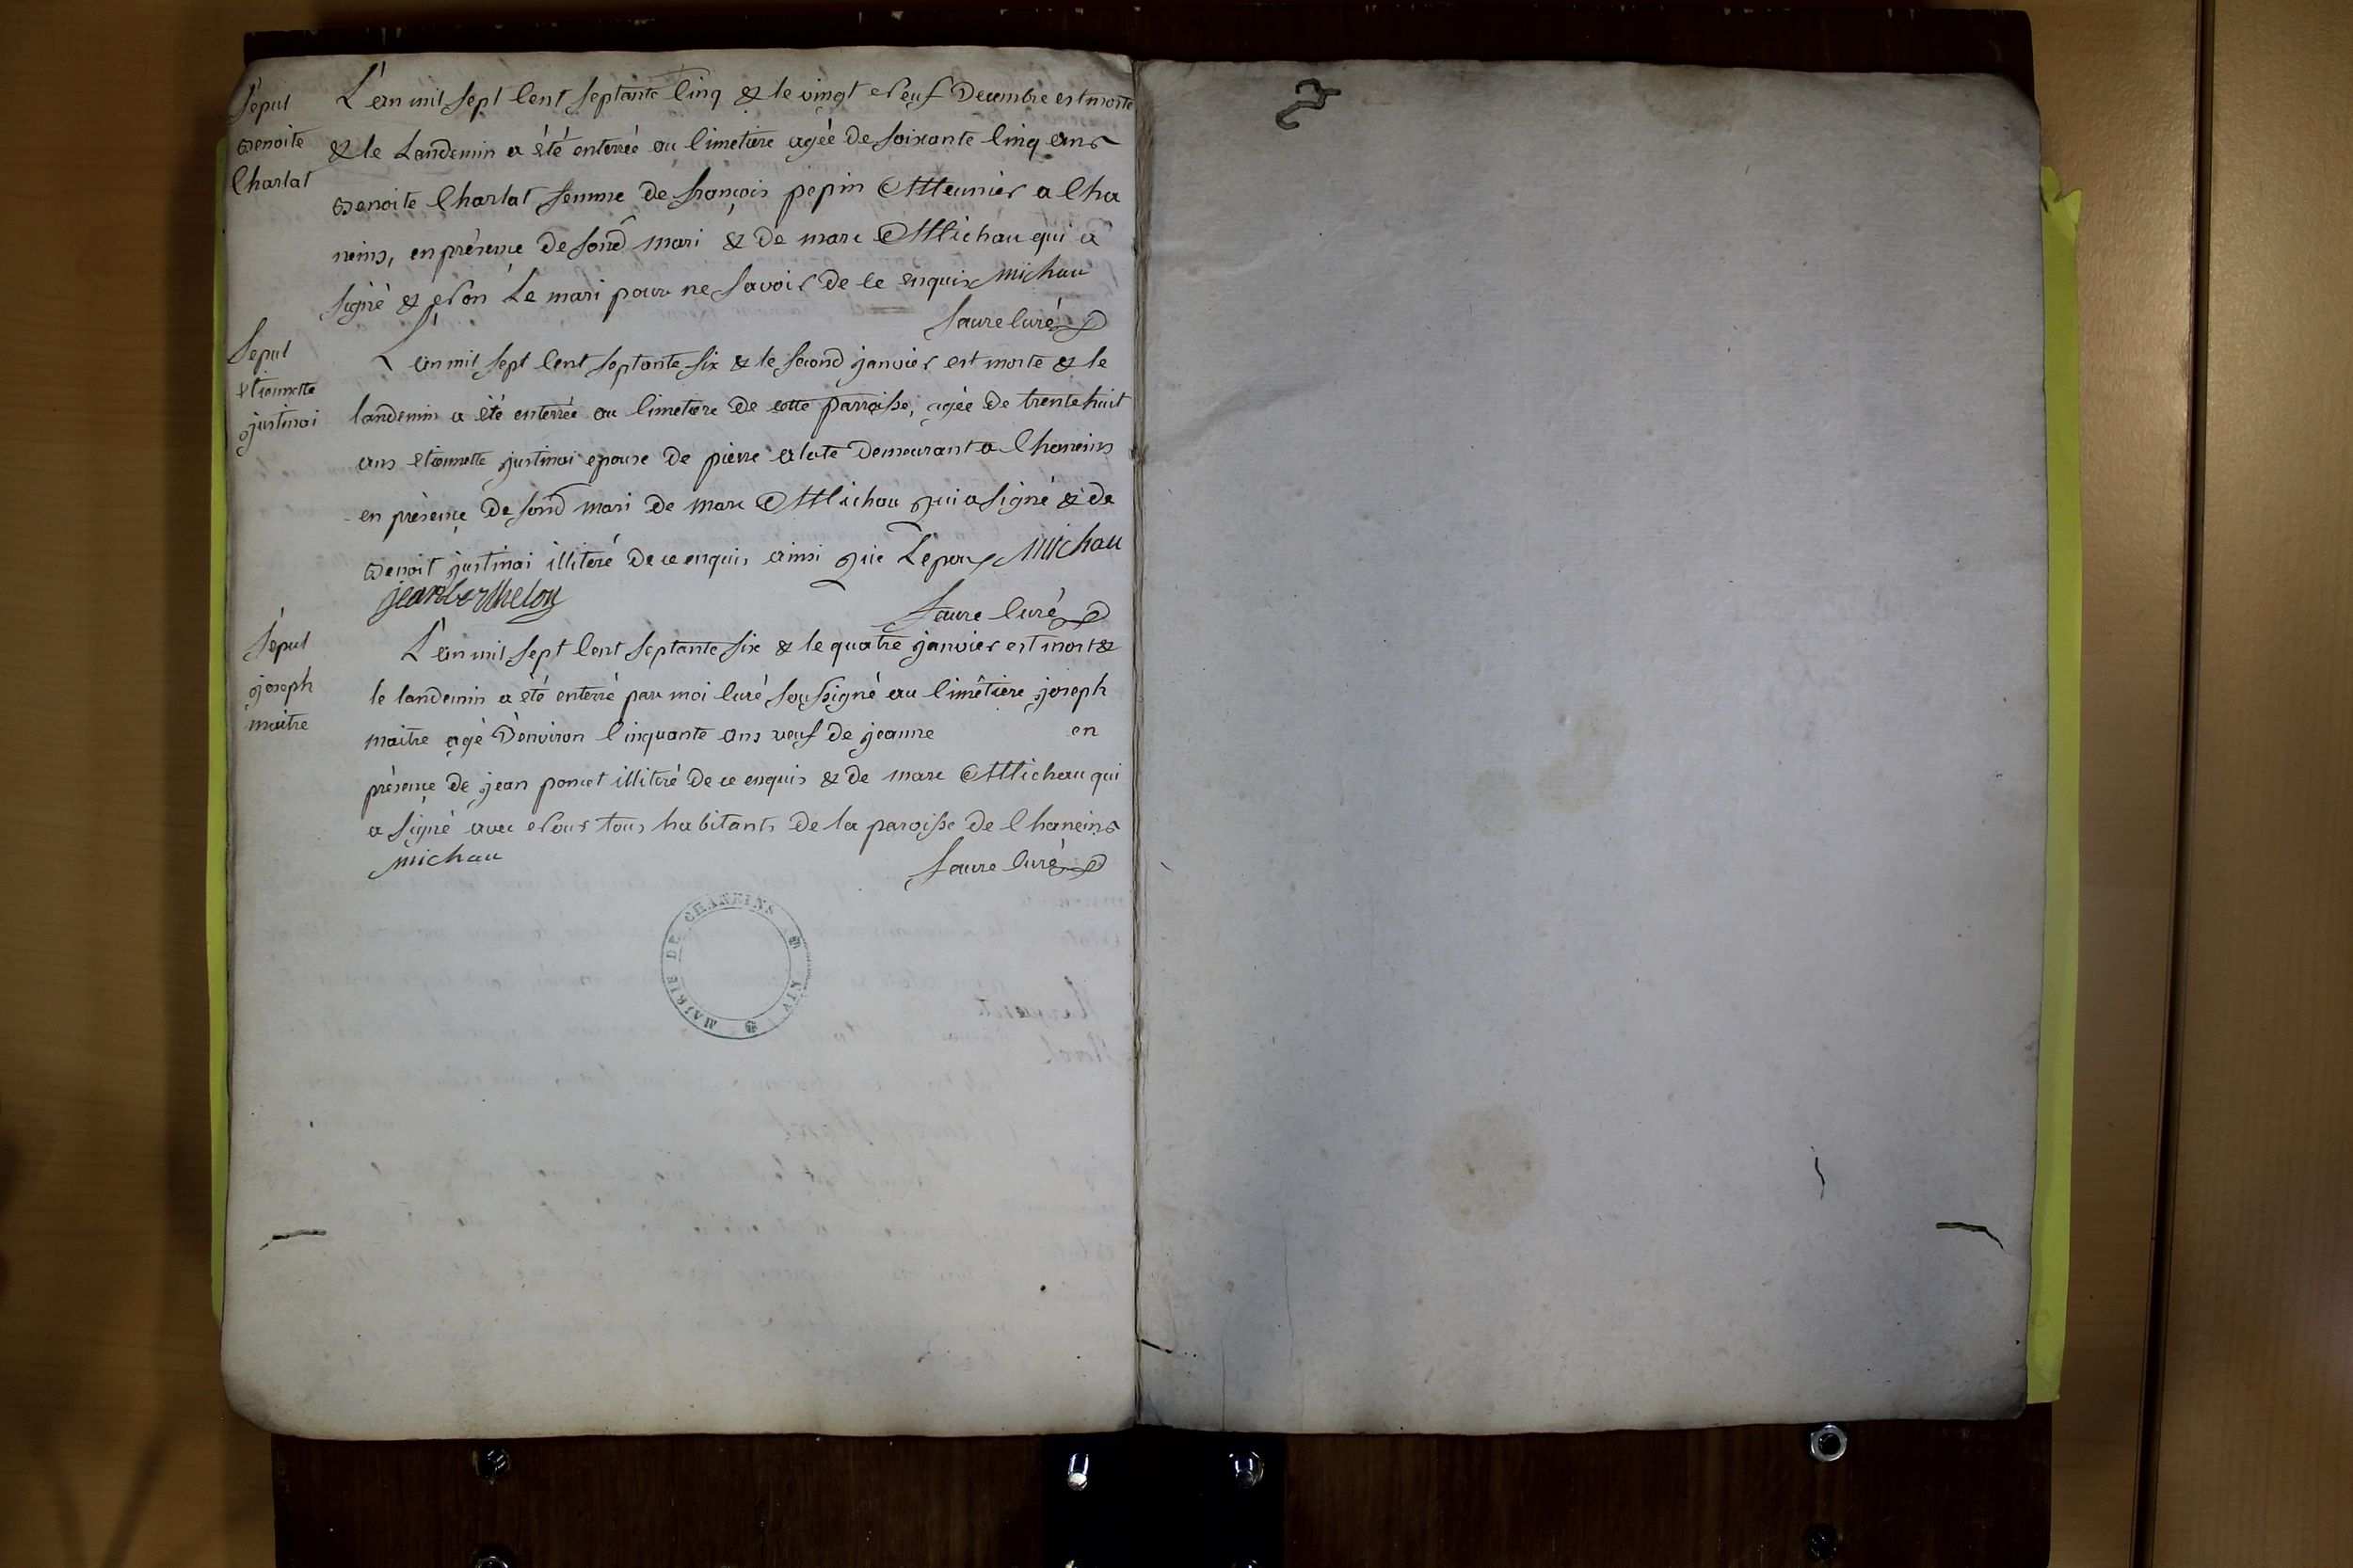 Sepul
Benoite
Charlat
L'an mil sept Cent septante Cinq & le vingt Neuf Decembre est morte
& le Landemin a été enterrée au Cimetiere agée de soixante Cinq ans
Benoite Charlat femme de françois pepin Meunier a Cha
neins, en présence de sond mari & de marc Michau qui a
signé & Non Le mari pour ne savoir de ce enquis michau
faure Curé
Sepul
etiennette
justinai
L'an mil sept Cent septante six & le second janvier est morte & le
landemin a été enterrée au Cimetiere de cette parroisse, agée de trente huit
ans etiennette justinai epouse de pierre alate Demeurant a Chaneins
en présence de sond mari de marc Michau qui a signé & de
Benoit justinai illiteré de ce enquis ainsi que L'epoux Michau
jean berthelon
faure Curé
Sepul
joseph
maitre
L'an mil sept Cent septante six & le quatre janvier est mort &
le landemin a été enterré par moi Curé soussigné au Cimêtiere joseph
maitre agé D'environ Cinquante ans veuf de jeanne en
présence de jean poncet illiteré de ce enquis & de marc Michau qui
a signé avec Nous tous habitants de la paroisse de Chaneins
michau
faure Curé
MAIRIE DE CHANEINS
AIN